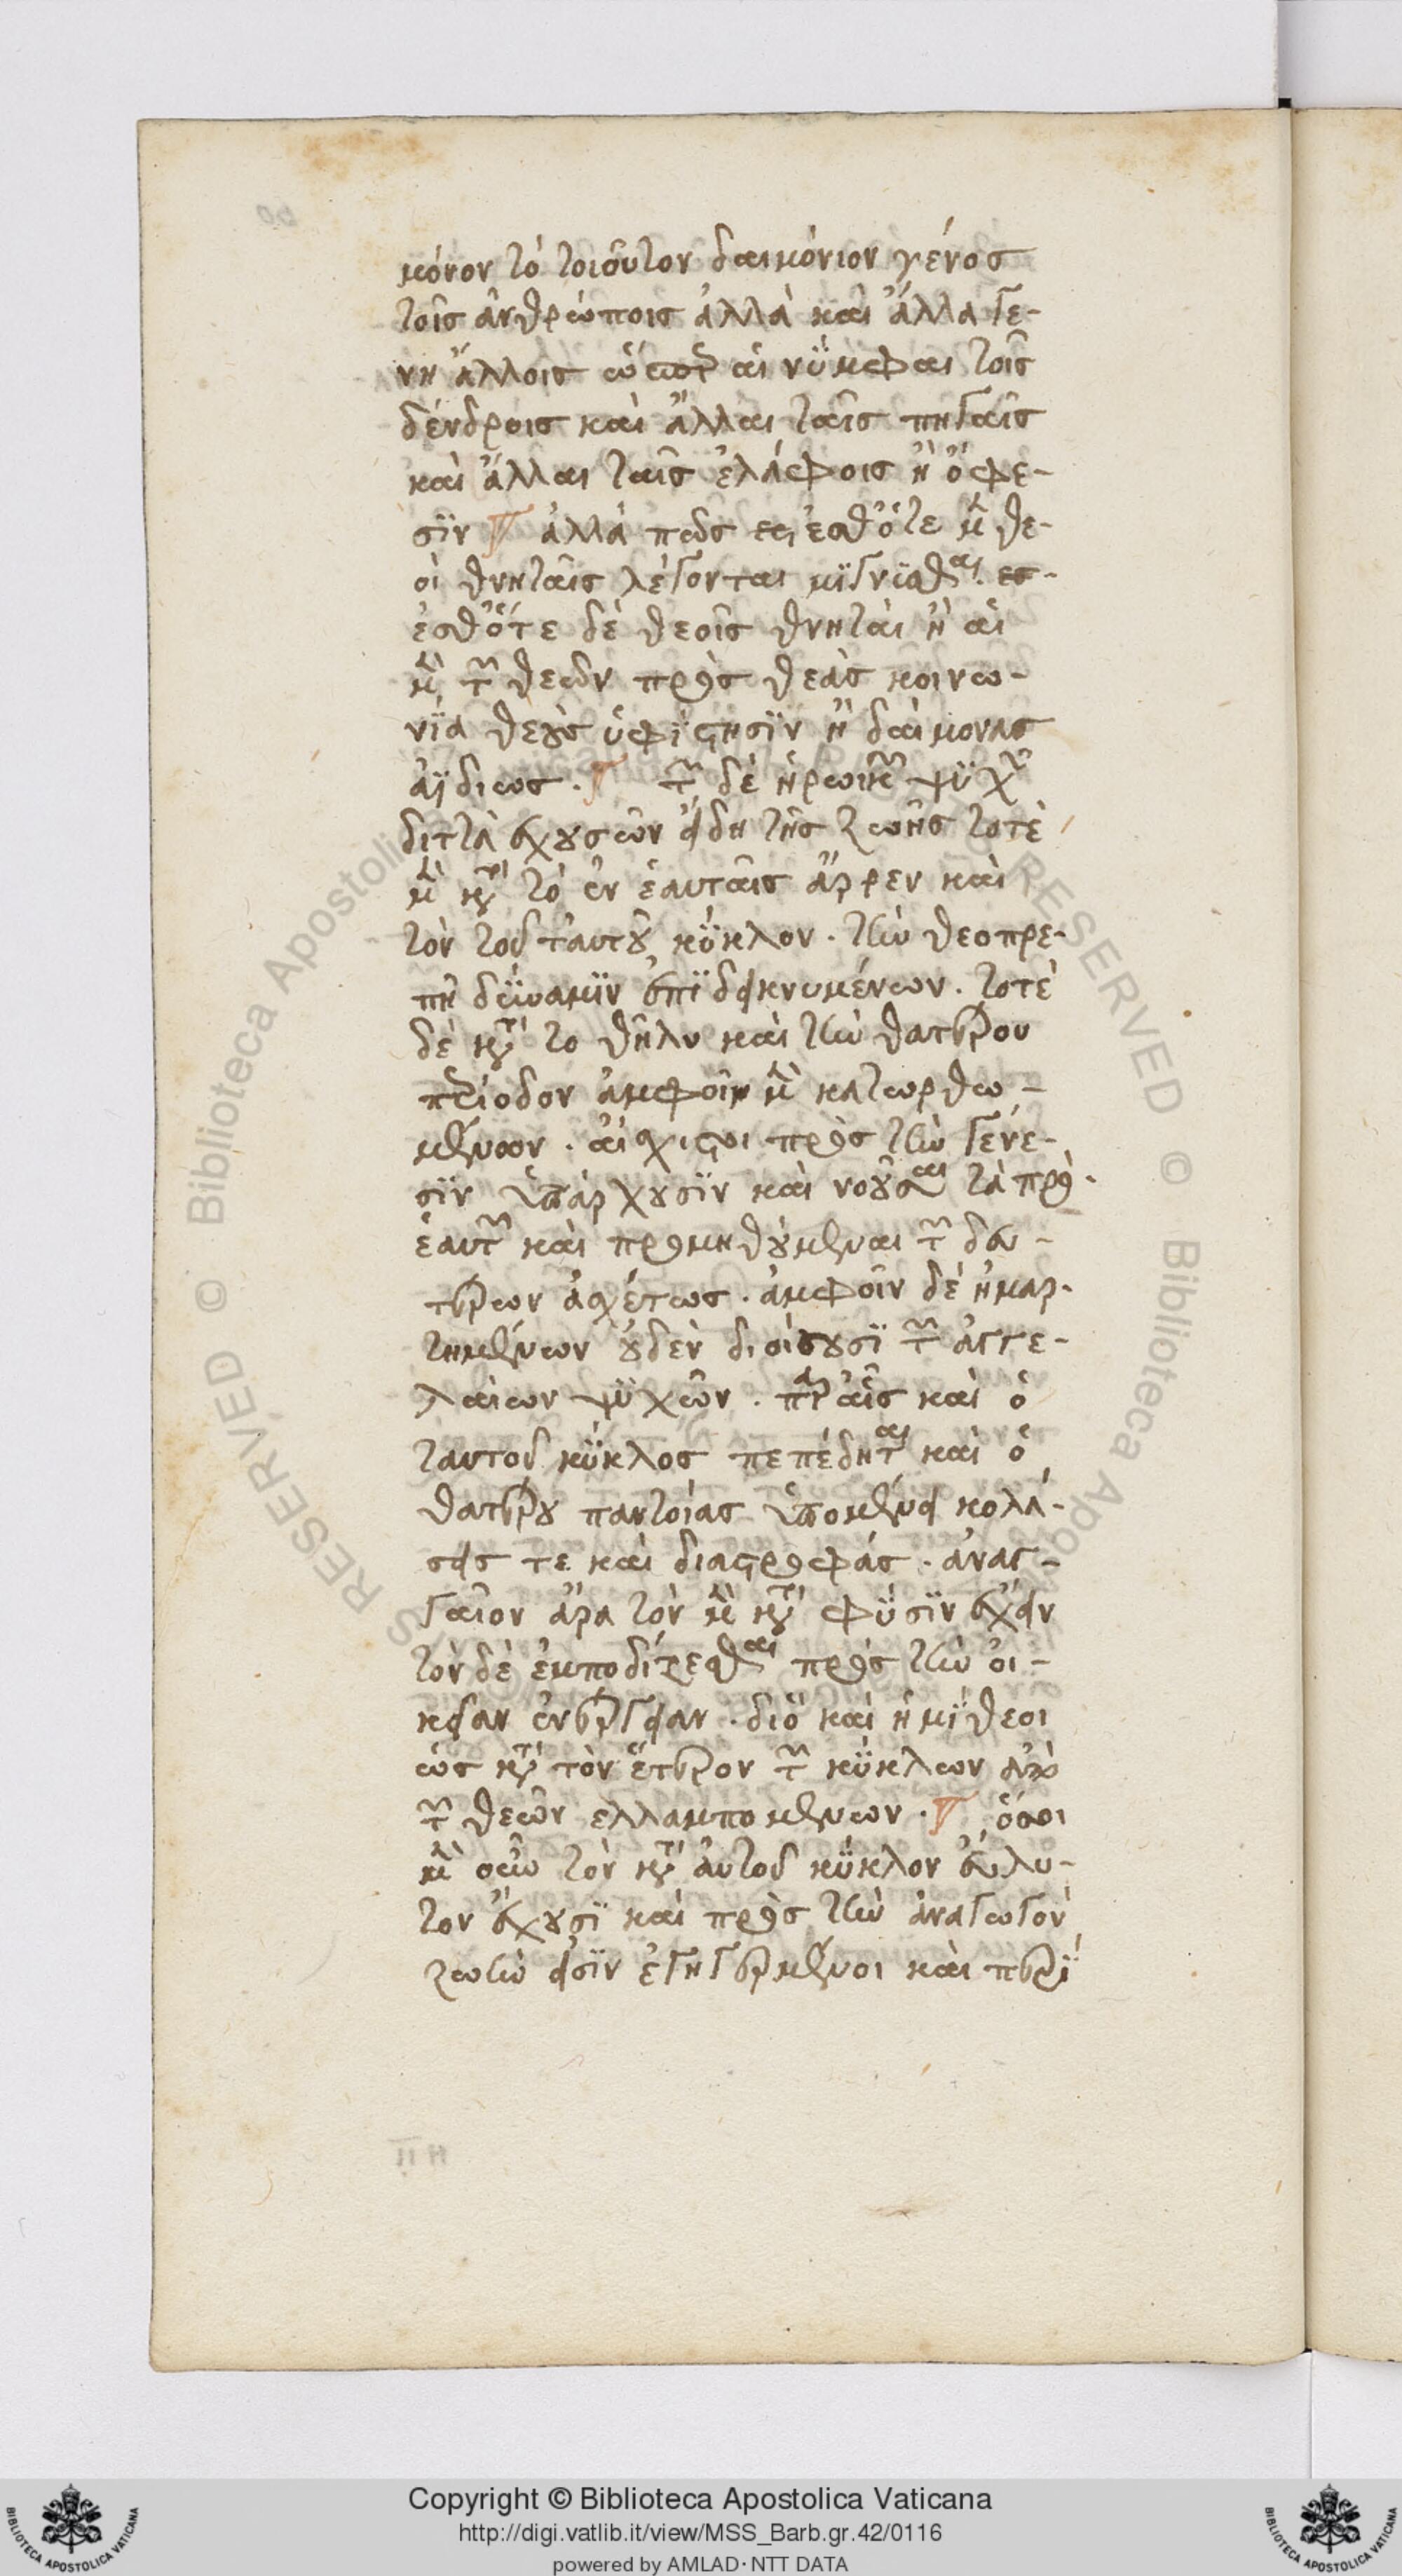 μόνον τὸ τοιοῦτον δαιμόνιον γένος
τοῖς ἀνθρώποις ἀλλὰ καὶ ἄλλα γέ-
νη ἄλλοις ὥσπερ αἱ νύμφαι τοῖς
δένδροις καὶ ἄλλαι ταῖς πηγαῖς
καὶ ἄλλαι ταῖς ἐλάφοις ἢ ὄφε-
σϊν ἀλλὰ πῶς ἐσθότε μὲν θε-
οὶ θνηταῖς λέγονται μίγνυσθαι. ες-
ἐσθότε δὲ θεοῖς θνηταὶ ἢ αἱ
μὲν τῶν θεῶν πρὸς θεὰς κοινω-
νία θεοὺς ὑφίστησϊν ἢ δαίμονας
ἀϊδίως. τῶν δὲ ἡρωικῶν ψυχῶν
διττὰ ἐχουσῶν εἴδη τῆς ζωῆς τοτὲ
μὲν κατὰ τὸ ἐν ἑαυταῖς ἄρρεν καὶ
τὸν τοῦ ταυτοῦ κύκλον. τὴν θεοπρε-
πῆ δύναμϊν ἐπιδεικνυμένων. τοτὲ
δὲ κατὰ το θῆλυ καὶ τὴν θατέρου
περίοδον ἀμφοῖν μὲν κατωρθω-
μένοιν. αἱ ψυχαι πρὸς τὴν γένε-
σϊν ὑπάρχουσϊν καὶ νοοῦσαι τὰ πρὸ
ἑαυτῶν καὶ προμηθούμεναι τῶν δευ-
τέρων ἀσχέτως. ἀμφοῖν δὲ ἡμαρ-
τημένων οὐδὲν διοίσουσϊ τῶν ἀγγε-
λαίων ψυχῶν. παρ αἷς καὶ ὁ
ταυτοῦ κύκλος πεπέδηται καὶ ὁ
θατέρου παντοίας ὑπομένει κολά-
σεις τε καὶ διαστροφάς. ἀναγ-
γαῖον ἄρα τὸν μὲν κατὰ φύσϊν ἔχειν
τὸν δὲ ἐμποδίζεσθαι πρὸς τὴν οἰ-
κείαν ἐνέργειαν. διὸ καὶ ἡμίθεοι
ὡς κατὰ τὸν ἕτερον τῶν κύκλων ὑπὸ
τῶν θεῶν ελλαμπομένων. ὅσοι
μὲν οὖν τὸν κατ αὐτοῦ κύκλον εὔλυ-
τον ἔχουσϊ καὶ πρὸς τὴν ἀναγωγὸν
ζωὴν εἰσϊν ἐγηγερμένοι καὶ περὶ